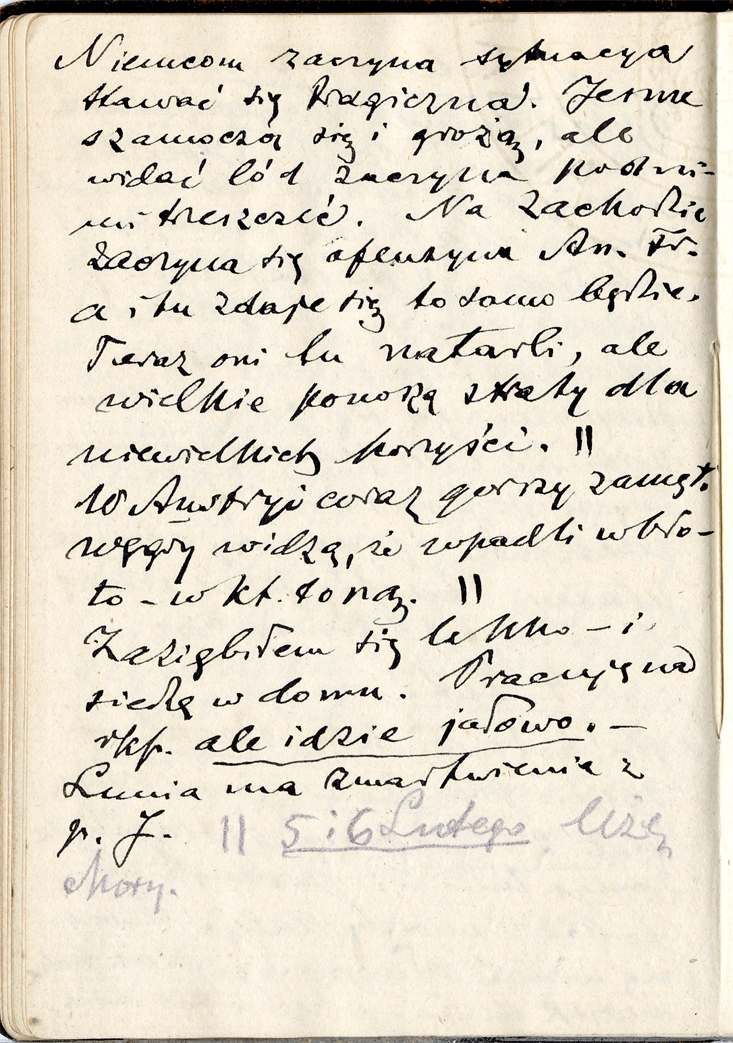 Niemcom zaczyna sytuacya
stawać się tragiczna. Jeszcze
szamoczą się i grożą, ale
widać lód zaczyna pod ni-
mi trzeszczeć. Na Zachodzie
zaczyna się ofenzywa An. Fr.
a i tu zdaje się to samo będzie.
Teraz oni tu natarli, ale
wielkie ponoszą straty dla
niewielkich korzyści. ||
W Austryi coraz gorszy zamęt.
Węgry widzą, że wpadli w bło-
to – w kt. toną. ||
Zaziębiłem się lekko – i
siedzę w domu. Pracuję nad
rkp. ale idzie jałowo. –
Lunia ma zmartwienia z
p. J. || 5 i 6 Lutego leżę
chory.